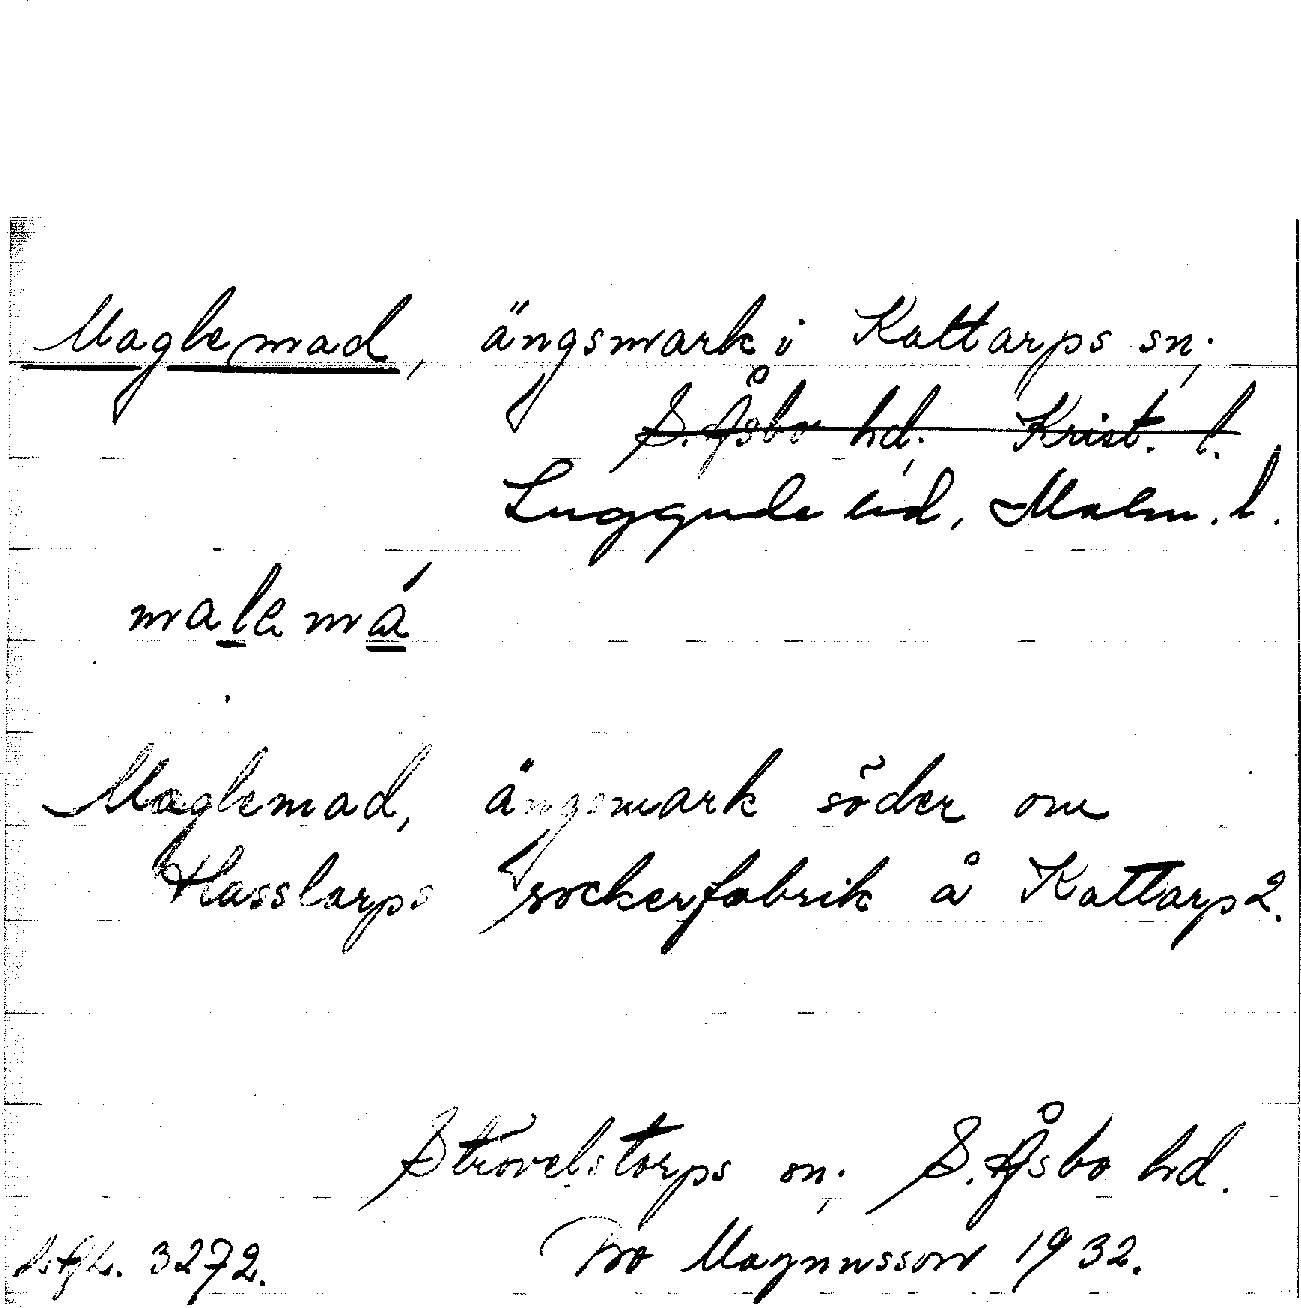 Maglemad, ängsmark i Kattarps sn;
S. Åsbo hd; Krist. l.
Luggude hd, Malm. l.
malemá
Maglemad, ängsmark söder om
Hasslarps sockerfabrik å Kattarp 2.
Strövelstorps sn; S. Åsbo hd.
Magnusson 1932.
3272.